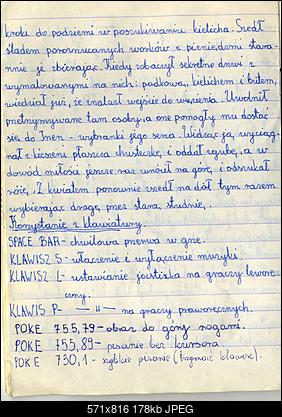 kroki do podziemi w poszukiwaniu kielicha. Szedł
śladem porozrzucanych worków z pieniędzmi stara-
nnie je zbierając. Kiedy zobaczył sekretne drzwi z
wymalowanymi na nich: podkową, kielichem i butem,
wiedział już, że znalazł wejście do więzienia. Uwolnił
przetrzymywane tam osoby, a one pomogły mu dostać
się do Inen - wybranki jego serca. Widząc ją, wyciąg-
nął z kieszeni płaszcza chusteczkę, i oddał zgubę, a w
dowód miłości jeszcze raz wrócił na górę, i odszukał
różę. Z kwiatem ponownie zszedł na dół tym razem
wybierając drogę, przez starą studnię.
Korzystanie z klawiatury.
SPACE BAR - chwilowa przerwa w grze.
KLAWISZ S - włączenie i wyłączenie muzyki.
KLAWISZ L - ustawianie joisticka na graczy leworę-
czny.
KLAWIS P - —„— na graczy praworęcznych.
POKE 755,79 - obraz do góry nogami.
POKE 755,89 - pisanie bez kursora.
POKE 730,1 - szybkie pisanie (trzymać klawisz).
571x816 178kb JPEG